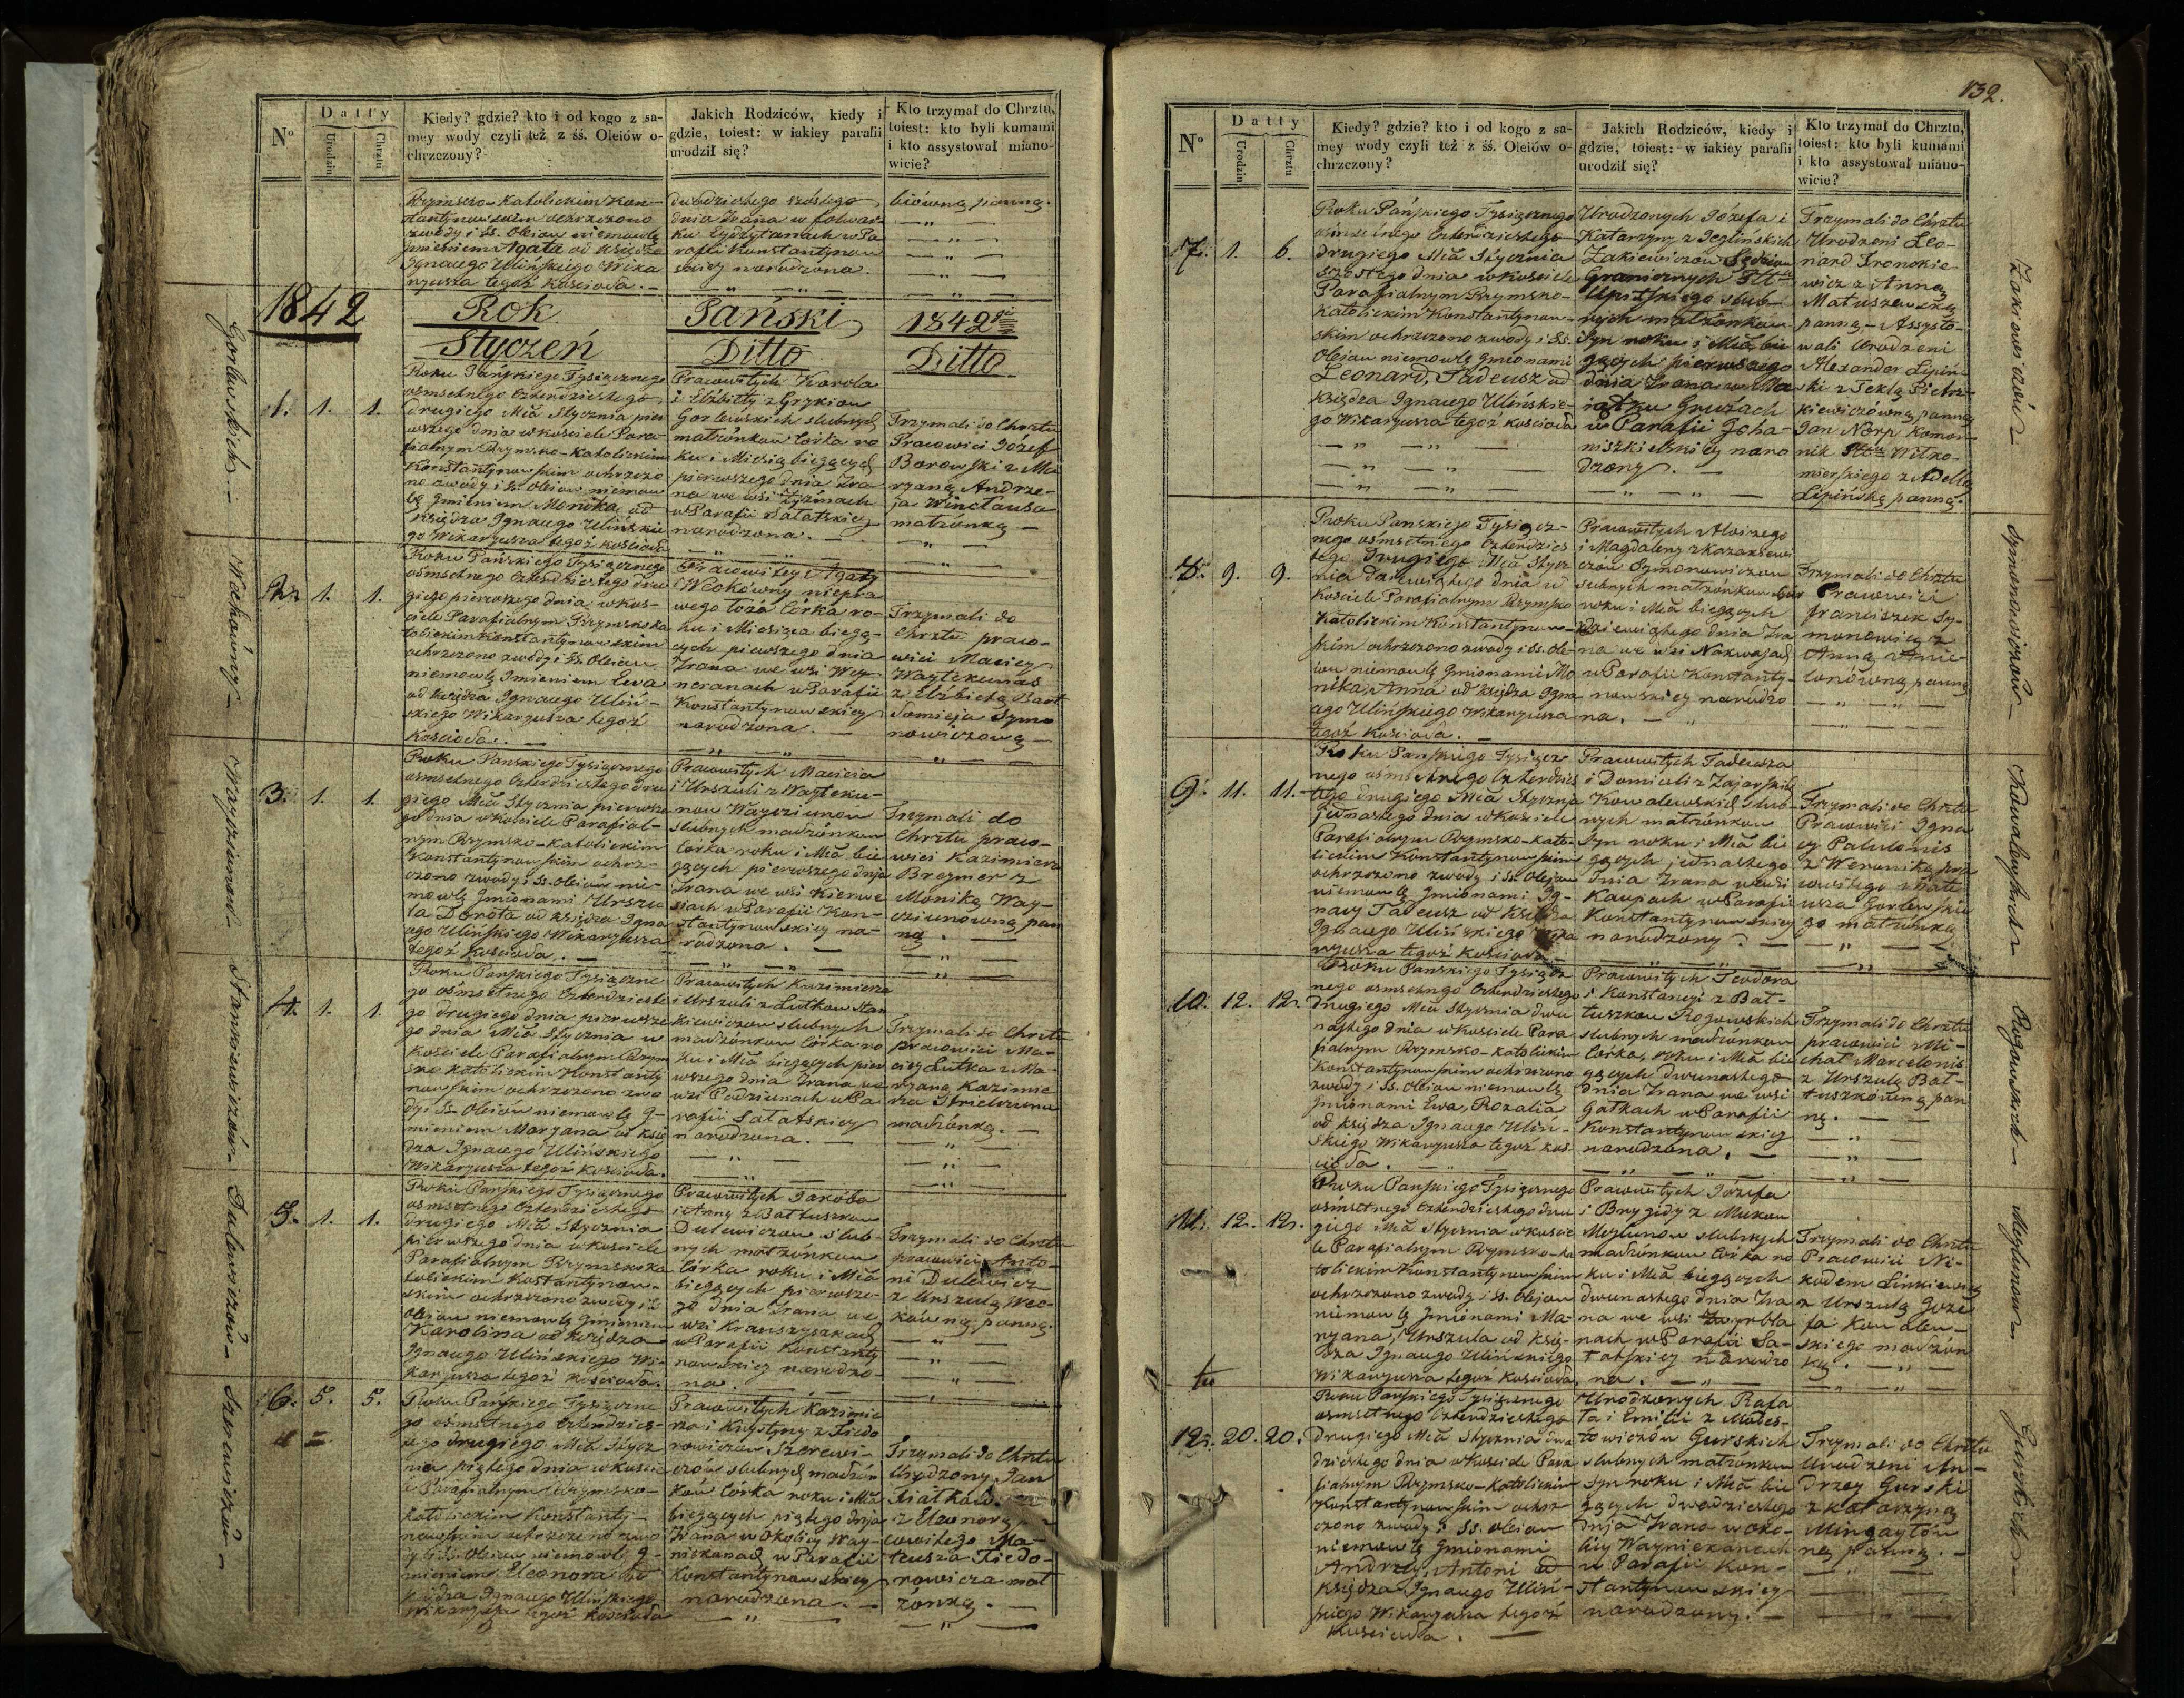 Nº
Datty
Urodzin
Chrztu
Kiedy? gdzie? kto i od kogo z sa-
mey wody czyli też z śś. Oleiów o-
chrzczony?
Jakich Rodziców, kiedy i
gdzie, toiest: w iakiey parafii
urodził się?
Kto trzymał do Chrztu,
toiest: kto byli kumami
i kto assystował miano-
wicie?
Rzymsko-Katolickim Kon-
stantynowskim ochrzczono
zwody i śś. Oleiow niemowle
Imieniem Agata od Księdza
Ignacego Ulińskiego Wika
ryusza tegoż Kościoła. —
dwódziestego szóstego
dnia Zrana w folwar
ku w Pa
rafii Konstantynow
skiey narodzona.
biówną panną.
1842
Rok
Pański
1842
Styczeń
Ditto
Ditto
Gorlewskich.
1. 1. 1.
Roku Pańskiego Tysiącznego
osmsetnego Czterdziestego
drugiego Mca Stycznia pier
wszego dnia w kościele Para-
fialnym Rzymsko-Katolickim
Konstantynowskim ochrzczo
no zwody i ś. Oleiow niemow
lę Imieniem Monika od
Księdza Ignacego Ulińskie
go Wikaryusza tegoż kościoła
Pracowitych Karola
i Elżbiety z Grykiow
Gorlewskich slubnych
małżonkow Córka ro
ku i Miesiąca biegących
pierwszego dnia Zra
na we wsi
w Parafii Sałatskiey
narodzona. —
Trzymali do Chrztu
Pracowici Józef
Borowski z Ma
ryaną Andrze-
ja Winclausa
małżonką —
Weckówny
2. 1. 1.
Roku Pańskiego Tysiącznego
osmsetnego Czterdziestego dru
giego pierwszego dnia w koś-
ciele Parafialnym Rzymskoka
tolickim Konstantynowskim
ochrzczono zwody i śś. Oleiow
niemowlę Imieniem Ewa
od księdza Ignacego Uliń-
skiego Wikaryusza tegoż
Kościoła. —
Pracowitey Agaty
Weckówny niepra
wego łoża Córka ro-
ku i Miesiąca biegą-
cych pierwszego dnia
Zrana we wsi Wey
neranach w Parafii
Konstantynowskiey
narodzona. —
Trzymali do
Chrztu praco-
wici Maciey
Waytekunas
z Elżbietą Bart
łomieja Symo
nowiczową —
3. 1. 1.
Roku Pańskiego Tysiącznego
osmsetnego Czterdziestego dru
giego Mca Stycznia pierwsze
go dnia w kościele Parafial-
nym Rzymsko-Katolickim
Konstantynowskim ochrz-
czono zwody i śś. Oleiow nie-
mowlę Imionami Urszu
la Dorota od księdza Igna
cego Ulińskiego Wikaryusza
tegoż kościoła. —
Pracowitych Macieja
i Urszuli z Wayteku-
now Waycziunow
slubnych małżonkow
Córka roku i Mca bie
gących pierwszego dnia
Zrana we wsi Kierwe
siach w Parafii Kon-
stantynowskiey na-
rodzona. —
Trzymali do
Chrztu praco-
wici Kazimierz
Brezmer z
Moniką Way-
cziunowną pan
ną. —
Stankiewiczów
4. 1. 1.
Roku Pańskiego Tysiączne
go ośmsetnego Czterdzieste
go drugiego dnia pierwsze
go dnia Mca Stycznia w
Kościele Parafialnym Rzym
sko Katolickim Konstanty
nowskim ochrzczono zwo
dy i śś Oleiow niemowlę I-
mieniem Maryana od Księ
dza Ignacego Ulińskiego
Wikaryusza tegoż Kościoła.
Pracowitych Kazimierza
i Urszuli z Lutkow Stan
kiewiczow slubnych
małżonkow Córka ro
ku i Mca biegących pier
wszego dnia Zrana we
wsi Padziunach w Pa
rafii Sałatskiey
narodzona. —
Trzymali do Chrztu
pracowici Ma-
ciey Lutka z Ma-
ryaną Kazimie
rza
małżonką. —
Dulewiczów
5. 1. 1.
Roku Pańskiego Tysiącznego
osmsetnego Czterdziestego
drugiego Mca Stycznia
pierwszego dnia w kościele
Parafialnym Rzymskoka
tolickim Kostantynow-
skim ochrzczono zwody i ś
Oleiow niemowlę Imieniem
Karolina od księdza
Ignacego Ulińskiego Wi-
karyusza tegoż kościoła.
Pracowitych Jakóba
i Anny z Bałtuszkow
Dulewiczow slub-
nych małżonkow
Córka roku i Mca
biegących pierwsze-
go dnia Zrana we
wsi Krauszyszkach
w Parafii Konstanty
nowskiey narodzo-
na.
Trzymali do Chrztu
pracowici Anto-
ni Dulewicz
z Urszulą Wec-
kówną panną.
6. 5. 5.
Roku Pańskiego Tysiączne
go ośmsetnego Czterdzies-
tego drugiego Mca Stycz
nia piątego dnia w koście
le Parafialnym Rzymsko-
Katolickim Konstanty-
nowskim ochrzczono zwo
dy i śś. Oleiow niemowlę I-
mieniem Eleonora od
księdza Ignacego Ulińskiego
Wikaryusza tegoż kościoła
Pracowitych Kazimie
rza i Krystyny z Fiedo
rowiczow Szerewi-
czow slubnych małżon
kow Córka roku i Mca
biegących piątego dnia
Zrana w okolicy Way-
niekanach w Parafii
Konstantynowskiey
narodzona. —
Trzymali do Chrztu
Urodzony Jan
z Eleonorą
cowitego Ma-
teusza Fiedo-
rowicza mał
żonką. —
132.
Nº
Datty
Urodzin
Chrztu
Kiedy? gdzie? kto i od kogo z sa-
mey wody czyli też z śś. Oleiów o-
chrzczony?
Jakich Rodziców, kiedy i
gdzie, toiest: w iakiey parafii
urodził się?
Kto trzymał do Chrztu,
toiest: kto byli kumami
i kto assystował miano-
wicie?
7. 1. 6.
Roku Pańskiego Tysiącznego
osmsetnego Czterdziestego
drugiego Mca Stycznia
szóstego dnia w kościele
Parafialnym Rzymsko-
Katolickim Konstantynow-
skim ochrzczono zwody i śś.
Oleiow niemowlę Imionami
Leonard, Tadeusz od
księdza Ignacego Ulińskie-
go Wikaryusza tegoż kościoła
Urodzonych Józefa i
Katarzyny z Jeglińskich
Zakiewiczow Sędziow
Granicznych Pttu
Upitskiego slub-
nych małżonkow
Syn roku i Mca bie
gących pierwszego
dnia Zrana we Ma
iątku Grużach
w Parafii Joha-
niszkielskiey naro
dzony. —
Trzymali do Chrztu
Urodzeni Leo-
nard Ironskie
wicz z Anną
Matuszewską
panną — Assysto-
wali Urodzeni
Alexander Lipiń-
ski z Teklą Pietrz-
kiewiczówną panną
Jan Norp Komor-
nik Pttu Wiłko-
mierskiego z Adellą
Lipińską panną.
Symonowiczów
8. 9. 9.
Roku Pańskiego Tysiącz-
nego osmsetnego Czterdzies
tego Drugiego Mca Stycz
nia dziewiątego dnia w
kościele Parafialnym Rzymsko
Katolickim Konstantynow-
skim ochrzczono zwody i śś. Ole-
iow niemowlę Imionami Mo
nika, Anna od Księdza Igna
cego Ulińskiego Wikaryusza
tegoż Kościoła. —
Pracowitych Aloizego
i Magdaleny z Kazarzewi
czow Symonowiczow
slubnych małżonkow Cór
roku i Mca biegących
dziewiątego dnia Zra
na we wsi Nakwajach
w Parafii Konstanty-
nowskiey narodzo
na. —
Trzymali do Chrztu
Pracowici
Franciszek Sy-
monowicz z
Anną
panną
Kowalewskich
9. 11. 11.
Roku Pańskiego Tysiącz
nego osmsetnego Czterdzies
tego drugiego Mca Stycznia
jednastego dnia w kościele
Parafialnym Rzymsko-Kato-
lickim Konstantynowskim
ochrzczono zwody i śś Oleiow
niemowlę Imionami Ig-
nacy Tadeusz od Księdza
Ignacego Ulińskiego Wika
ryusza tegoż kościoła
Pracowitych Tadeusza
i Domiceli z Zajarskich
Kowalewskich slub-
nych małżonkow
Syn roku i Mca bie
gących jednastego
dnia Zrana we wsi
Kaupach w Parafii
Konstantynowskiey
narodzony. —
Trzymali do Chrztu
Pracowici Igna
cy Patulonis
z Weroniką pra
cowitego Mate
usza Gorlewskie
go małżonką
Rogowskich
10. 12. 12.
Roku Pańskiego Tysiącz
nego osmsetnego Czterdziestego
drugiego Mca Stycznia dwu
nastego dnia w kościele Para
fialnym Rzymsko-Katolickim
Konstantynowskim ochrzczono
zwody i śś. Oleiow niemowlę
Imionami Ewa, Rozalia
od księdza Ignacego Uliń-
skiego Wikaryusza tegoż koś-
cioła. —
Pracowitych Teodora
i Konstancyi z Bał-
tuszkow Rogowskich
slubnych małżonkow
Córka, roku i Mca bie
gących dwunastego
dnia Zrana we wsi
Gatkach w Parafii
Konstantynowskiey
narodzona. —
Trzymali do Chrztu
pracowici Mi-
chał Marcelonis
z Urszulą Bał-
tuszkówną pan
ną. —
Meglunow
11. 12. 12.
Roku Pańskiego Tysiącznego
osmsetnego Czterdziestego dru
giego Mca Stycznia w koście
le Parafialnym Rzymsko-Ka
tolickim Konstantynowskim
ochrzczono zwody i śś. Oleiow
niemowlę Imionami Ma-
ryana, Urszula od Księ-
dza Ignacego Ulińskiego
Wikaryusza tegoż Kościoła.
Pracowitych Józefa
i Brygidy z Mukow
Meglunow slubnych
małżonkow Córka ro
ku i Mca biegących
dwunastego dnia Zra
na we wsi
nach w Parafii Sa-
łatskiey narodzo
na. —
Trzymali do Chrztu
Pracowici Ni-
kodem Linkiewicz
z Urszulą Joze
fa Kowalew-
skiego małżon
ką. —
tu
Gurskich
12. 20. 20.
Roku Pańskiego Tysiącznego
osmsetnego Czterdziestego
drugiego Mca Stycznia dwu
dziestego dnia w kościele Para
fialnym Rzymsko-Katolickim
Konstantynowskim ochrz
czono zwody i śś. Oleiow
niemowlę Imionami
Andrzey, Antoni od
księdza Ignacego Uliń-
skiego Wikaryusza tegoż
Kościoła. —
Urodzonych Rafa
ła i Emilii z Moles-
towiczow Gurskich
slubnych małżonkow
Syn roku i Mca bie
gących dwudziestego
dnia Zrana w oko-
licy Wayniekanach
w Parafii Kon-
stantynowskiey
narodzony. —
Trzymali do Chrztu
Urodzeni An-
drzey Gurski
z Katarzyną
Mingaytow
ną panną. —